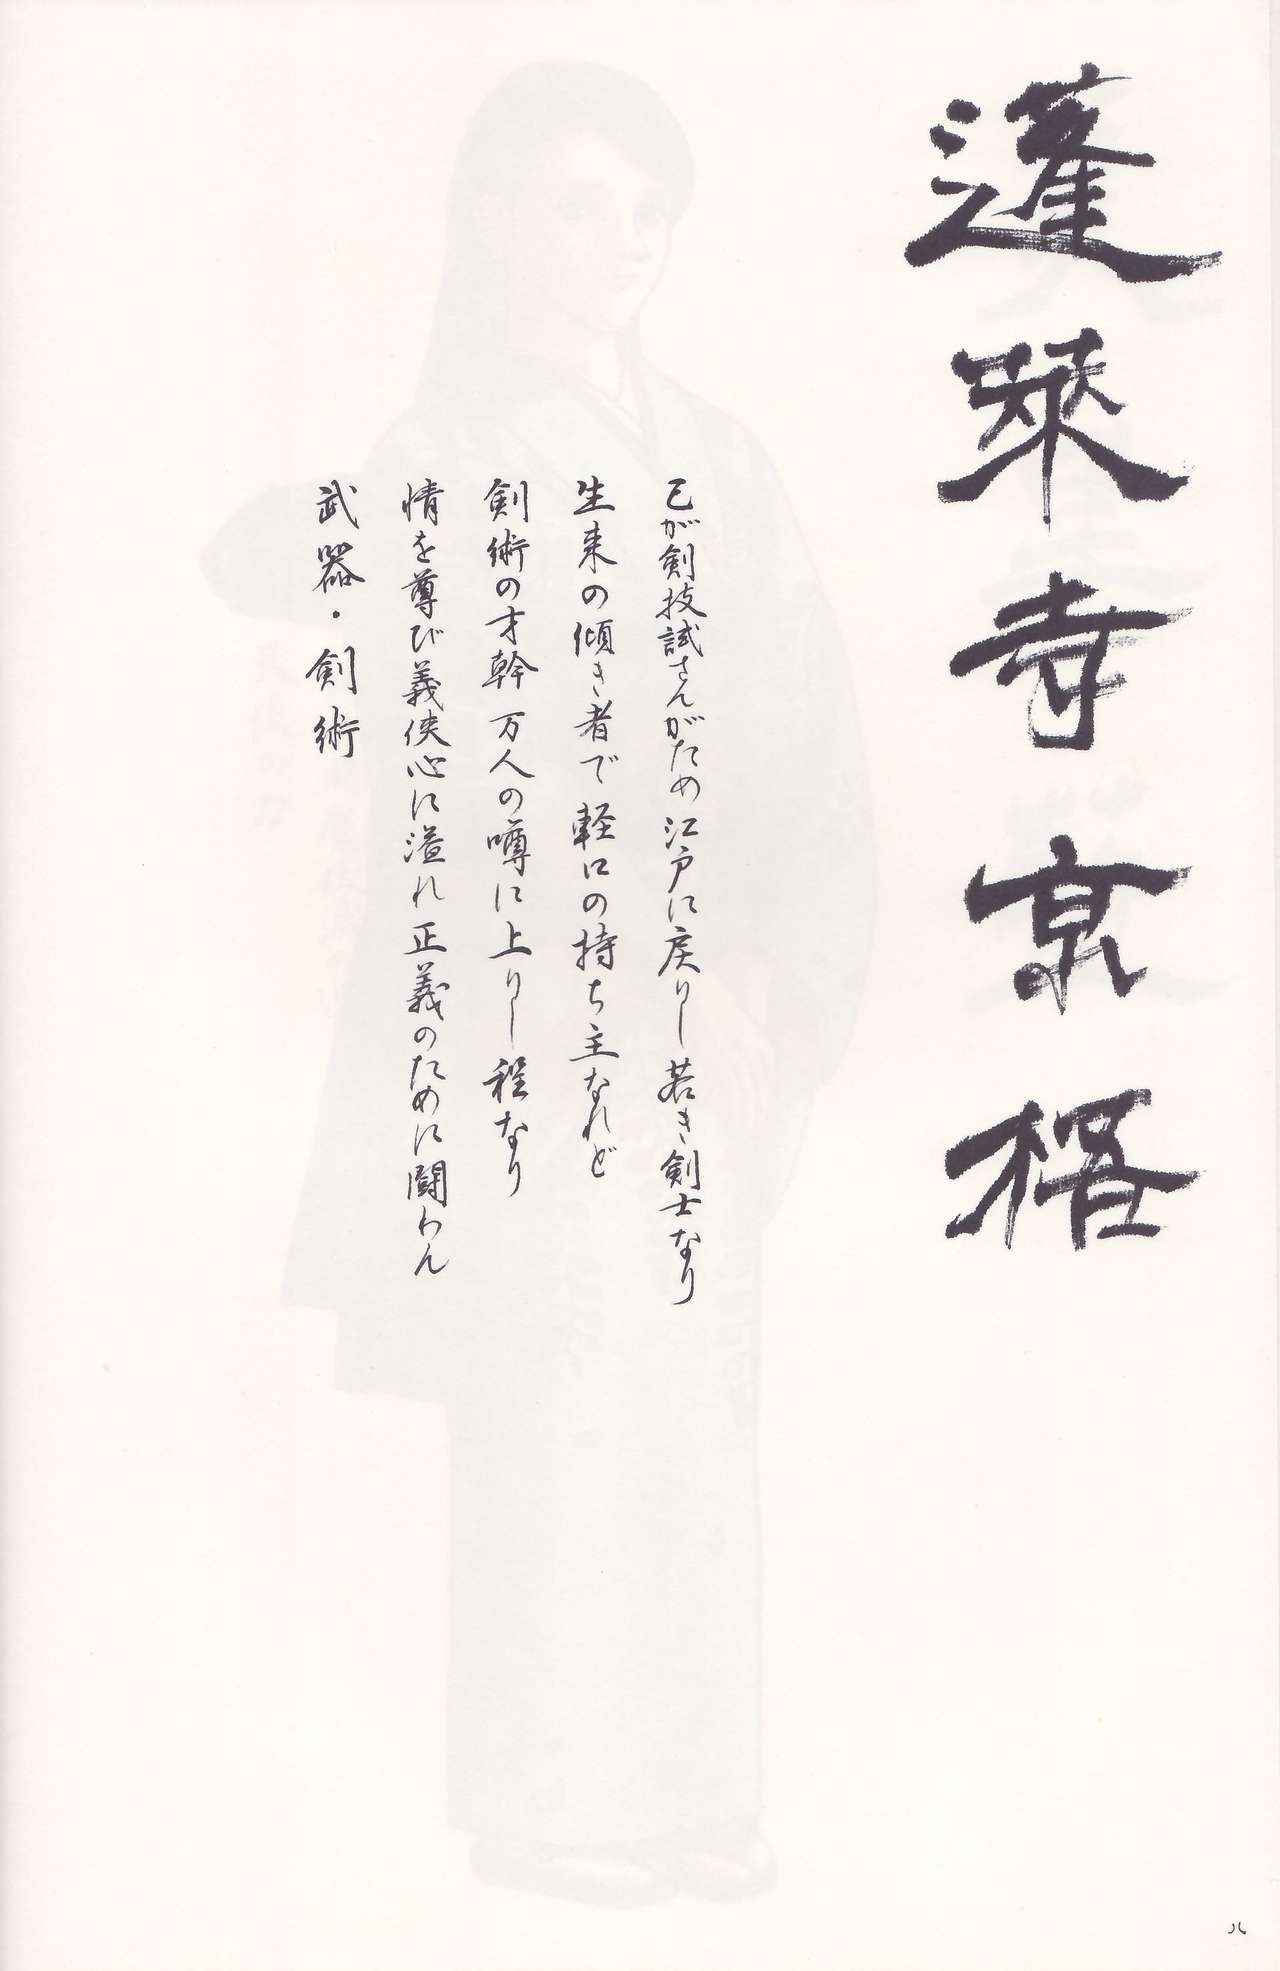 蓬莱寺京梧
己が剣技試さんがため江戸に戻りし若き剣士なり
生来の傾き者で軽口の持ち主なれど
剣術の才幹万人の噂に上りし程なり
情を尊び義侠心に溢れ正義のために闘わん
武器・剣術